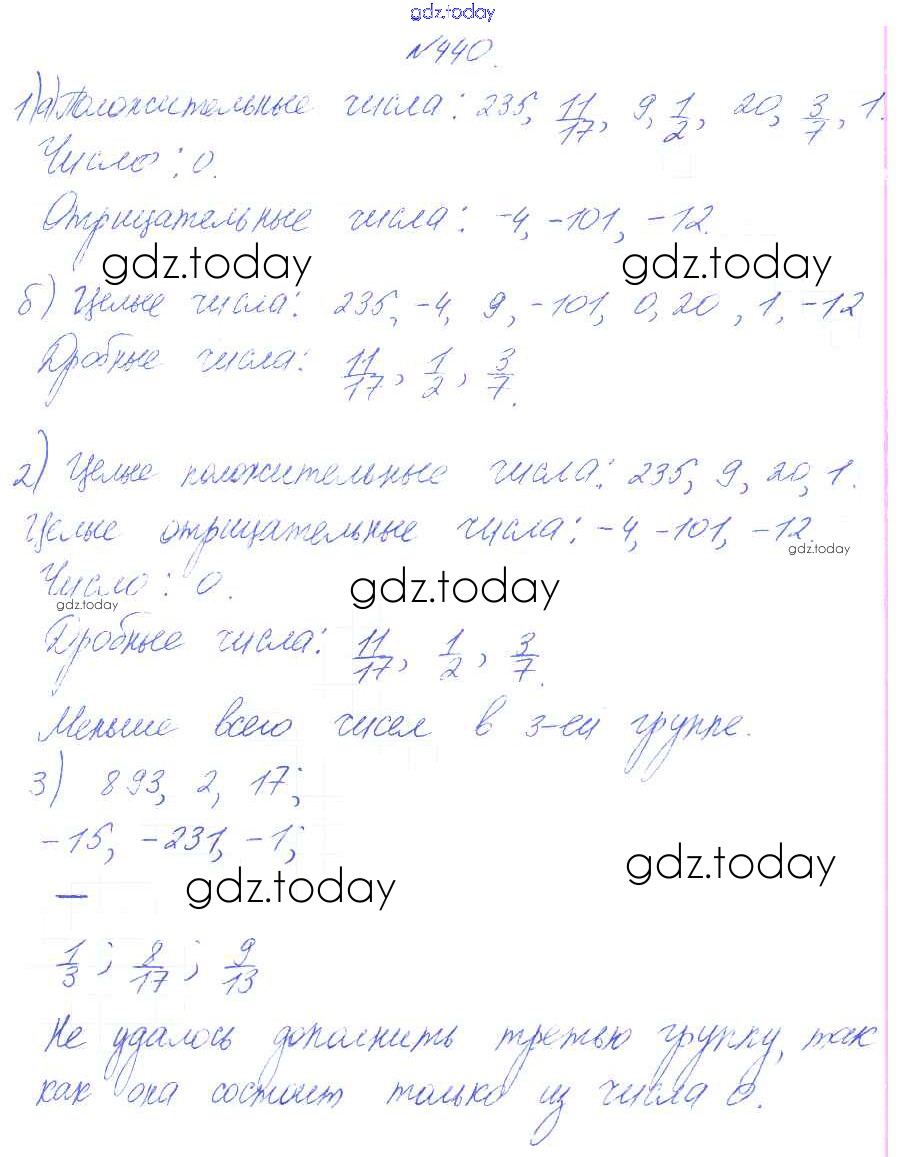 gdz.today
№440.
1) а) Положительные числа: 235, 11/17, 9, 1/2, 20, 3/7, 1.
Число: 0.
Отрицательные числа: -4, -101, -12.
gdz.today gdz.today
б) Целые числа: 235, -4, 9, -101, 0, 20, 1, -12
Дробные числа: 11/17, 1/2, 3/7.
2) Целые положительные числа: 235, 9, 20, 1.
Целые отрицательные числа: -4, -101, -12.
gdz.today
Число: 0.
gdz.today
gdz.today
Дробные числа: 11/17, 1/2, 3/7.
Меньше всего чисел в 3-ей группе.
3) 893, 2, 17;
-15, -231, -1;
gdz.today
gdz.today
—
1/3; 8/17; 9/13
Не удалось дополнить третью группу, так
как она состоит только из числа 0.